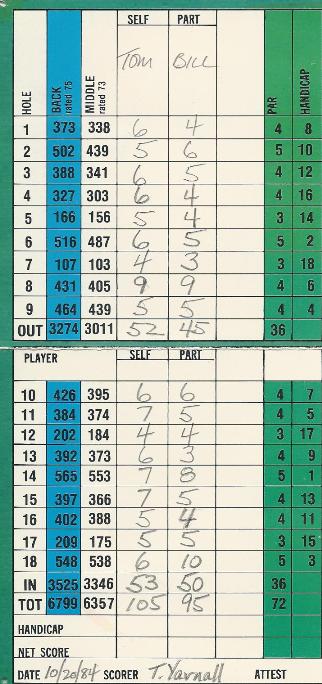 SELF PART
HOLE BACK rated 75 MIDDLE rated 73 TOM BILL PAR HANDICAP
1 373 338 6 4 4 8
2 502 439 5 6 5 10
3 388 341 6 5 4 12
4 327 303 6 4 4 16
5 166 156 5 4 3 14
6 516 487 6 5 5 2
7 107 103 4 3 3 18
8 431 405 9 9 4 6
9 464 439 5 5 4 4
OUT 3274 3011 52 45 36
PLAYER SELF PART
10 426 395 6 6 4 7
11 384 374 7 5 4 5
12 202 184 4 4 3 17
13 392 373 6 3 4 9
14 565 553 7 8 5 1
15 397 366 7 5 4 13
16 402 388 5 4 4 11
17 209 175 5 5 3 15
18 548 538 6 10 5 3
IN 3525 3346 53 50 36
TOT 6799 6357 105 95 72
HANDICAP
NET SCORE
DATE 10/20/84 SCORER T. Yarnall ATTEST